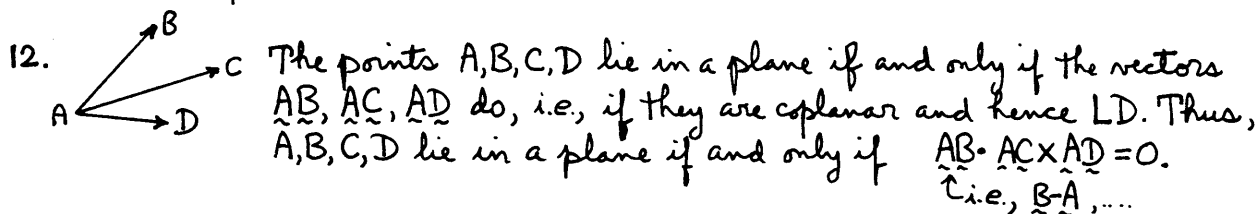 12.
B
C
A
D
The points A,B,C,D lie in a plane if and only if the vectors
AB, AC, AD do, i.e., if they are coplanar and hence LD. Thus,
A,B,C,D lie in a plane if and only if AB· AC×AD =0.
↑i.e., B-A ,....